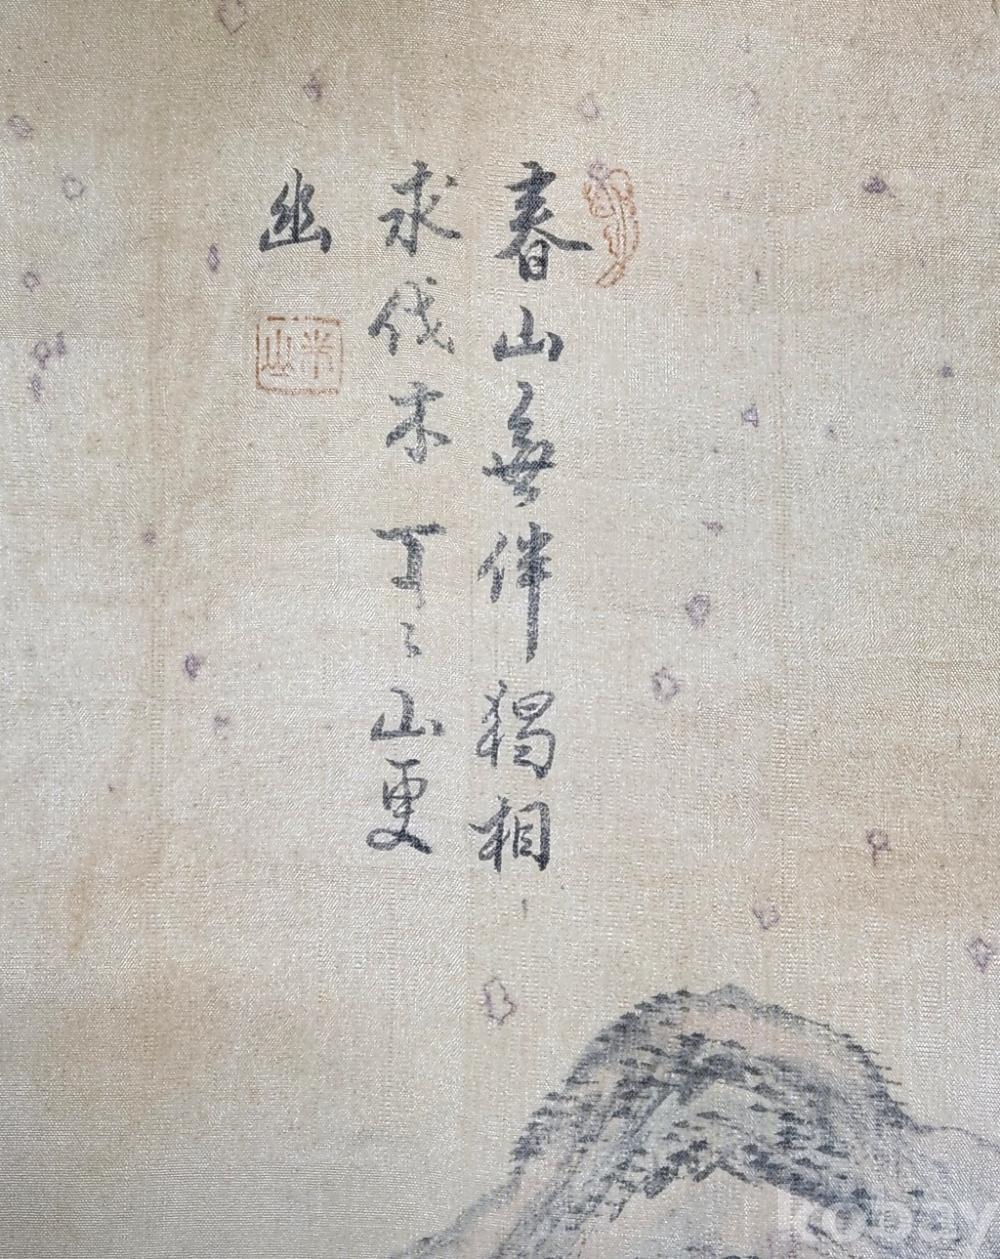 春山無伴獨相
求伐木丁〻山更
幽
米山
kobay